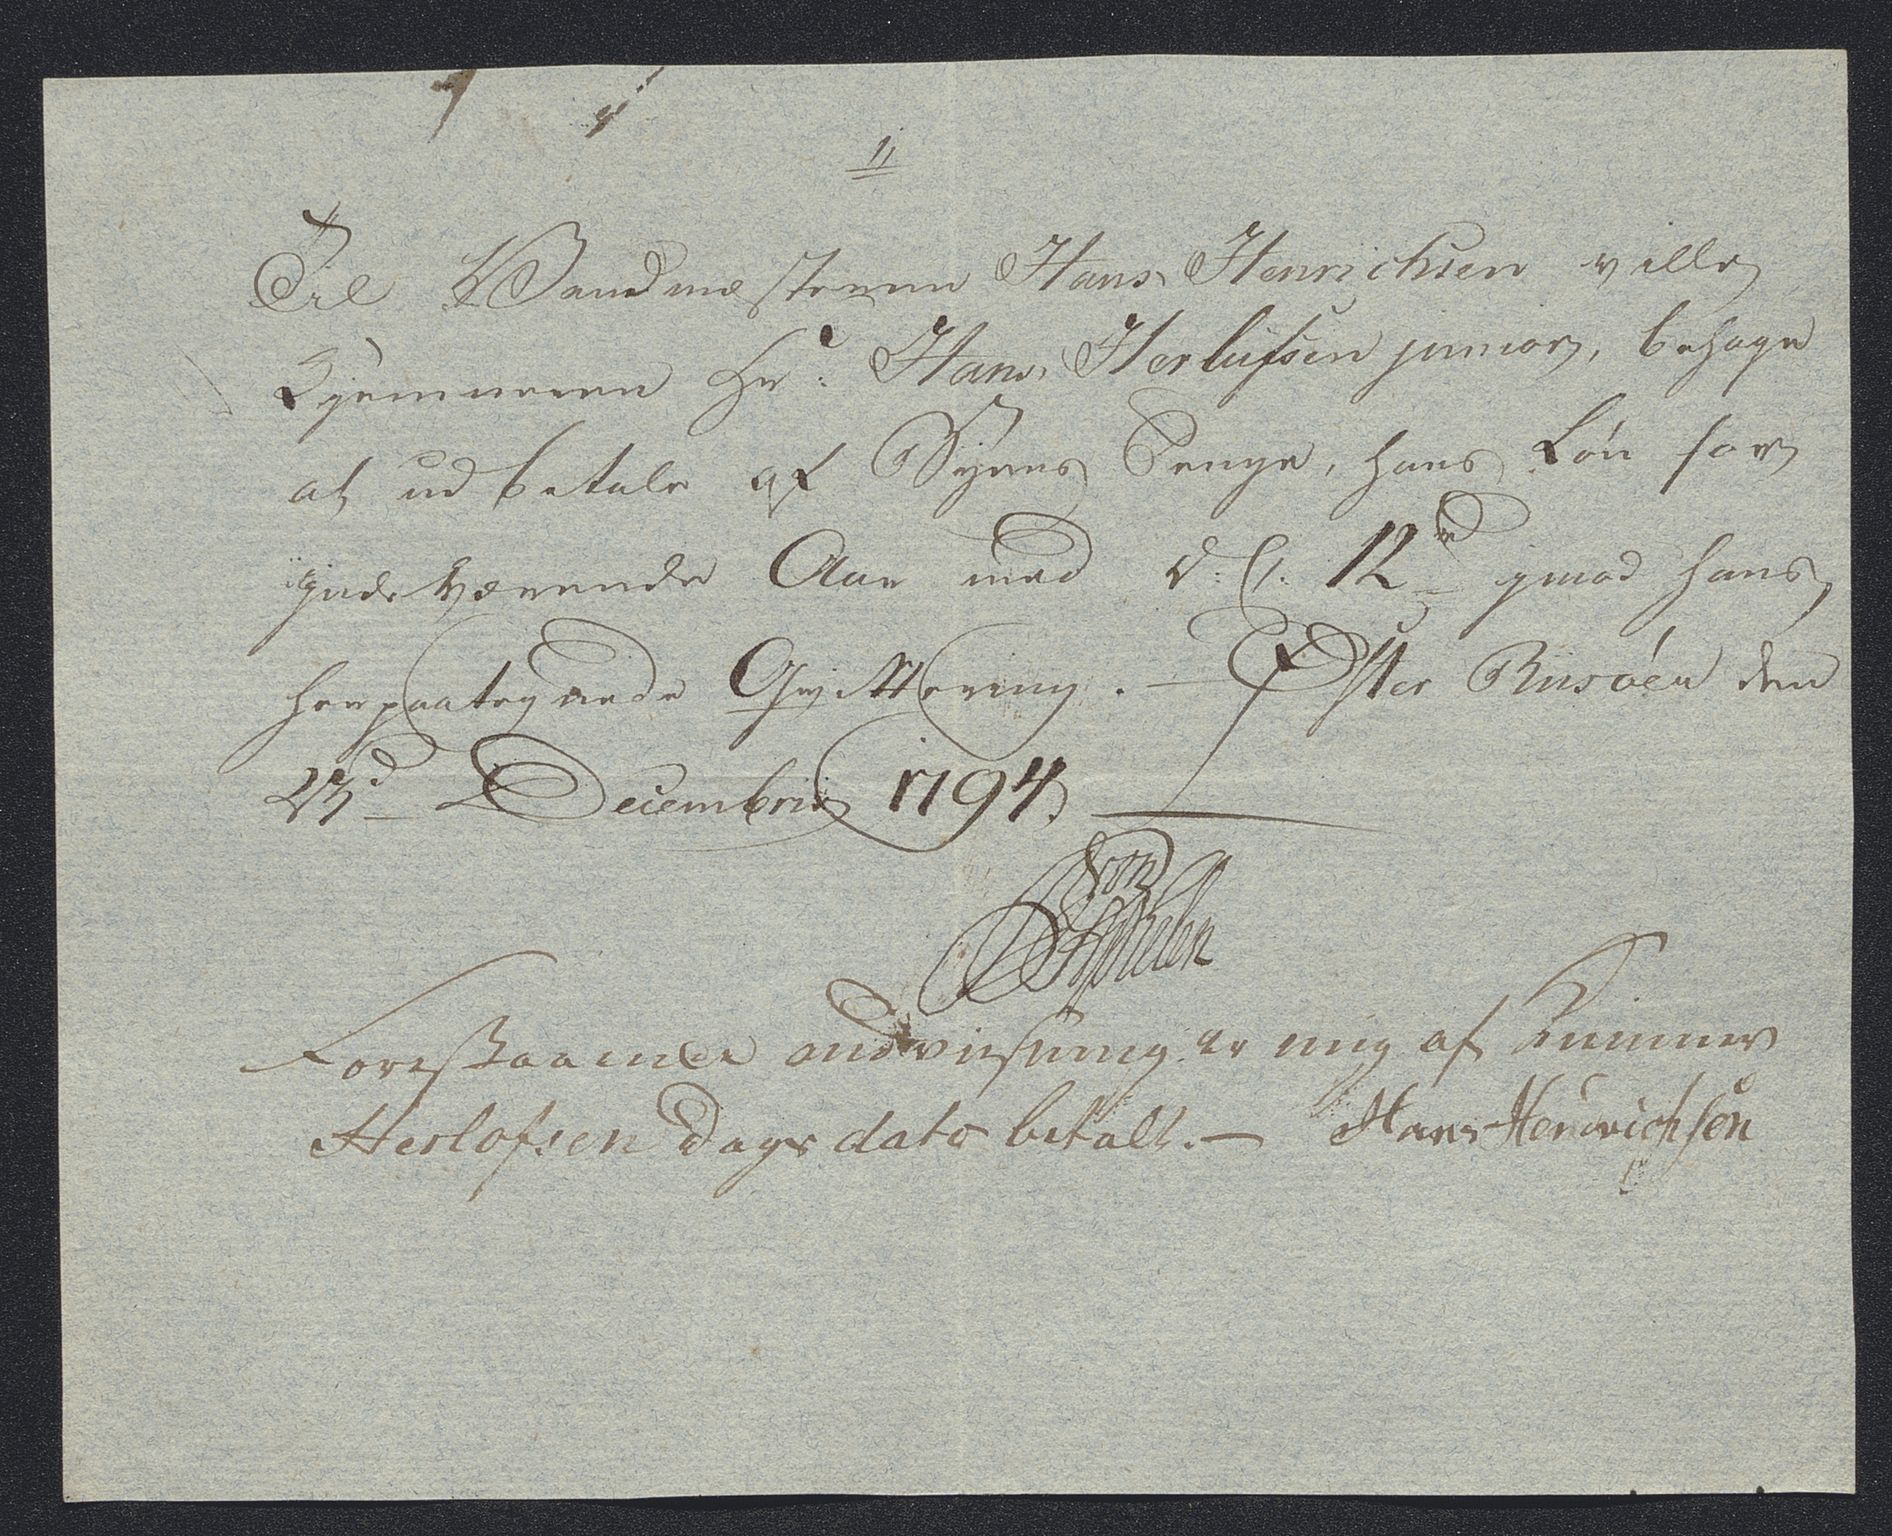 11
Til Vandmesteren Hans Henrichsen ville
Kjemneren Hr: Hans Herlufsen junior, behage
at udbetale af Byens Penge, hans Løn for
indeværende Aar med 12 rd imod hans
herpaategnede Qvittering. — Øster Riisøer den
23d Decembris 1794. —
von
Foreståaende andvisning er mig af Kemner
Herlofsen Dags dato betalt. — Hans Hendrichsen